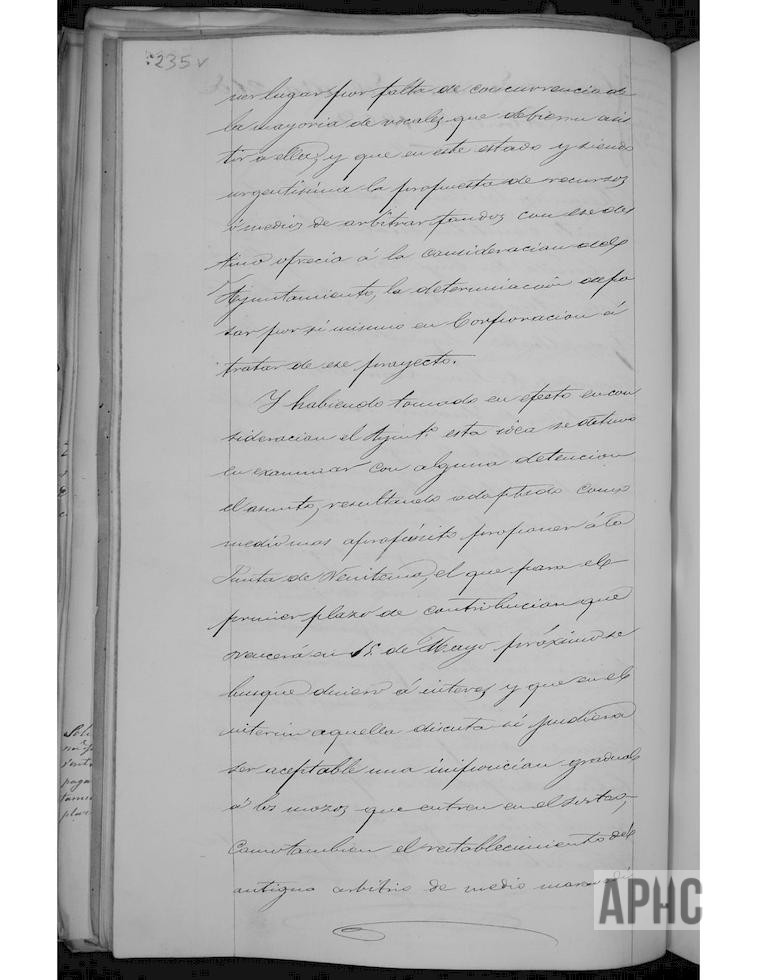 235 v
ner lugar por falta de concurrencia de
la mayoria de vocales que debieron asis
tir a ella, y que en este estado y siendo
urgentisima la propuesta de recursos
ó medios de arbitrar fondos con ese des
tino ofrecia á la consideracion del
Ayuntamiento, la determinacion de pa
sar por sí mismo en Corporacion á
tratar de ese proyecto.
Y habiendo tomado en efecto en con
sideracion el Ayunt.º esta idea se detuvo
en examinar con alguna detencion
el asunto, resultando adoptado como
medio mas apropósito proponer á la
Junta de el que para el
primer plazo de contribucion que
vencerá en 15 de Mayo próximo se
busque dinero á interes, y que en el
interin aquella discuta si pudiera
ser aceptable una imposicion gradual
á los mozos que entren en el sorteo,
como tambien el restablecimiento del
antiguo arbitrio de medio maravedi
Soli
paga
tamen
plaz
APHC